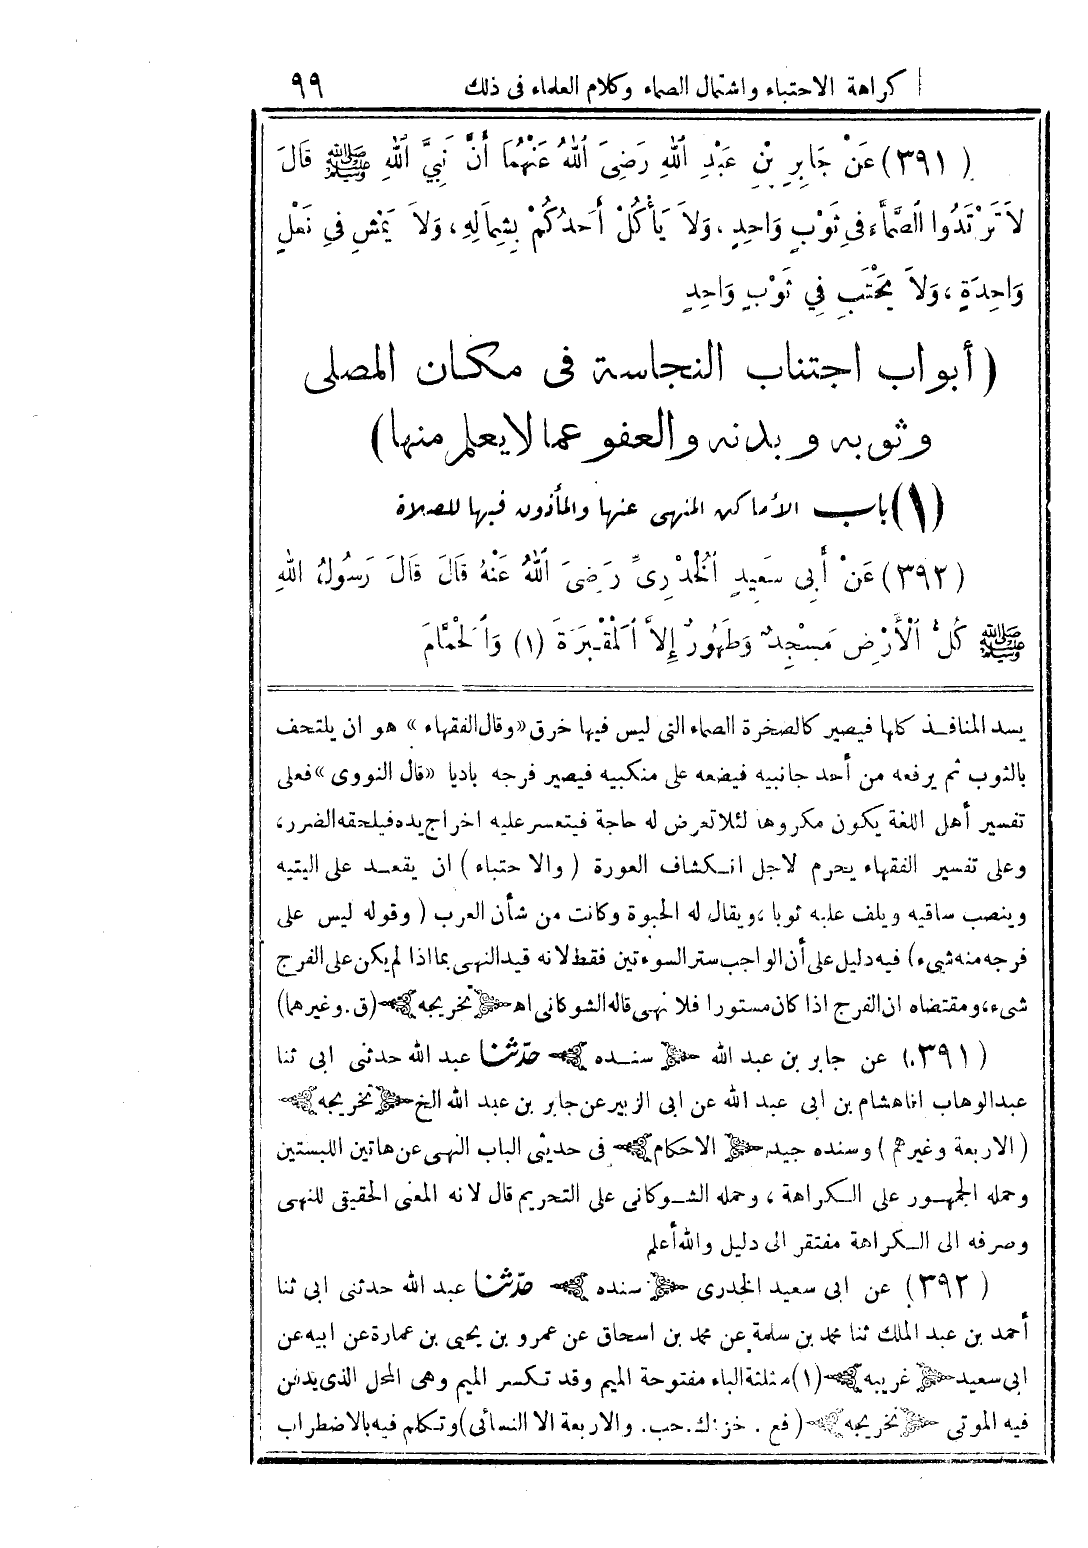 كراهة الاحتباء واشتمال الصماء وكلام العلماء فى ذلك ٩٩
(٣٩١) عَنْ جَابِرِ بْنِ عَبْدِ اللهِ رَضِىَ اللهُ عَنْهُمَا أَنَّ نَبِيَّ اللهِ ﷺ قَالَ
لاَ تَرْتَدُوا الصَّمَّاءَ فِى ثَوْبٍ وَاحِدٍ، وَلاَ يَأْكُلْ أَحَدُكُمْ بِشِمَالِهِ، وَلاَ يَمْشِ فِى نَعْلٍ
وَاحِدَةٍ، وَلاَ يَحْتَبِ فِي ثَوْبٍ وَاحِدٍ
(أبواب اجتناب النجاسة فى مكان المصلى
وثوبه وبدنه والعفو عما لا يعلم منها)
(١) باب الأماكن المنهى عنها والمأذون فيها للصلاة
(٣٩٢) عَنْ أَبِى سَعِيدٍ الْخُدْرِىِّ رَضِىَ اللهُ عَنْهُ قَالَ قَالَ رَسُولُ اللهِ
ﷺ كُلُّ الْأَرْضِ مَسْجِدٌ وَطَهُورٌ إِلاَّ الْمَقْبَرَةَ (١) وَالْحَمَّامَ
يسد المنافذ كلها فيصير كالصخرة الصماء التى ليس فيها خرق «وقال الفقهاء» هو ان يلتحف
بالثوب ثم يرفعه من أحد جانبيه فيضعه على منكبيه فيصير فرجه باديا «قال النووى» فعلى
تفسير أهل اللغة يكون مكروها لئلا تعرض له حاجة فيتعسر عليه اخراج يده فيلحقه الضرر،
وعلى تفسير الفقهاء يحرم لاجل انكشاف العورة (والاحتباء) ان يقعد على اليتيه
وينصب ساقيه ويلف عليه ثوبا، ويقال له الحبوة وكانت من شأن العرب (وقوله ليس على
فرجه منه شىء) فيه دليل على أن الواجب ستر السوءتين فقط لانه قيد النهى بما اذا لم يكن على الفرج
شىء، ومقتضاه ان الفرج اذا كان مستورا فلا نهى قاله الشوكانى اه تخريجه (ق. وغيرهما)
(٣٩١) عن جابر بن عبد الله سنده حدثنا عبد الله حدثنى ابى ثنا
عبد الوهاب انا هشام بن ابى عبد الله عن ابى الزبير عن جابر بن عبد الله الخ تخريجه
(الاربعة وغيرهم) وسنده جيد الاحكام فى حديثى الباب النهى عن هاتين اللبستين
وحمله الجمهور على الكراهة، وحمله الشوكانى على التحريم قال لانه المعنى الحقيقى للنهى
وصرفه الى الكراهة مفتقر الى دليل والله أعلم
(٣٩٢) عن ابى سعيد الخدرى سنده حدثنا عبد الله حدثنى ابى ثنا
أحمد بن عبد الملك ثنا محمد بن سلمة عن محمد بن اسحاق عن عمرو بن يحيى بن عمارة عن ابيه عن
ابى سعيد غريبه (١) مثلثة الباء مفتوحة الميم وقد تكسر الميم وهى المحل الذى يدفن
فيه الموتى تخريجه (فع. خز. ك. حب. والاربعة الا النسائى) وتكلم فيه بالاضطراب